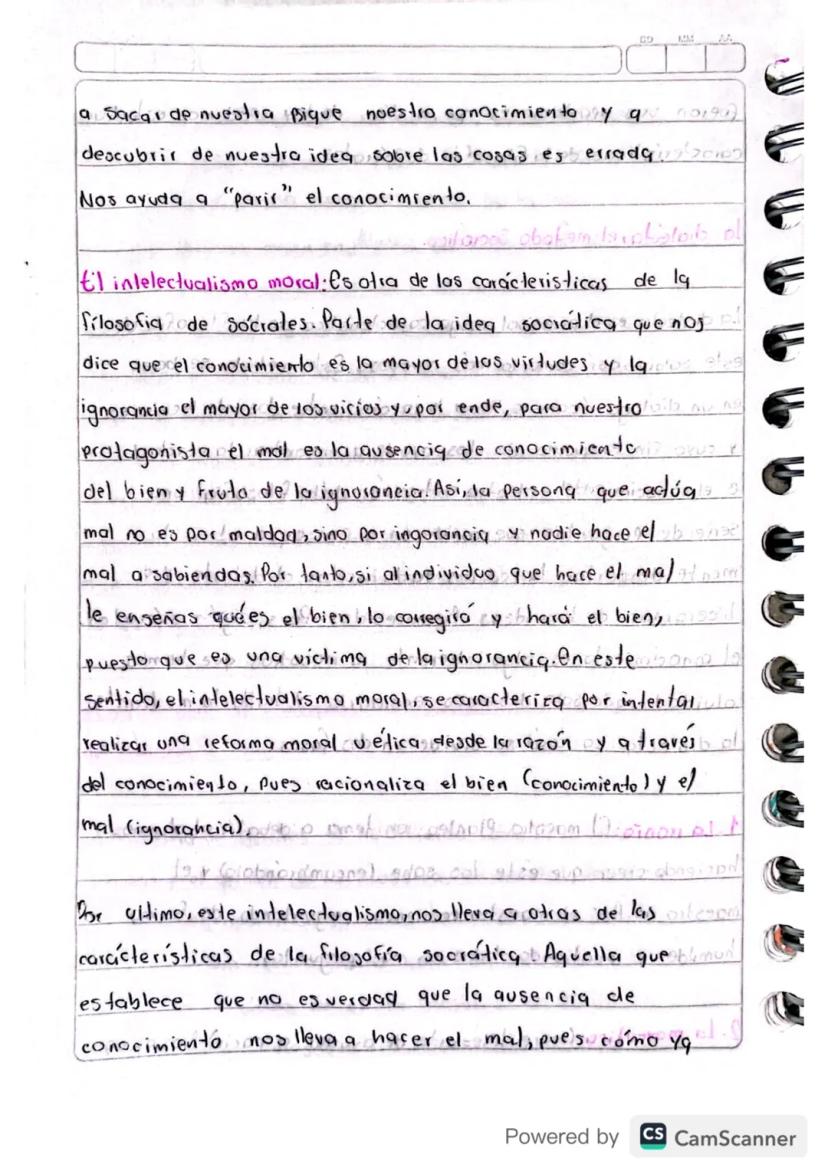 DD MM AA
a sacar de nuestra psique nuestro conocimiento y a
descubrir de nuestra idea sobre las cosas es errada.
Nos ayuda a "parir" el conocimiento.
El intelectualismo moral: Es otra de las carácteristicas de la
filosofia de sócrates. Parte de la idea socrática que nos
dice que el conocimiento es la mayor de los virtudes y la
ignorancia el mayor de los vicios y, por ende, para nuestro
protagonista el mal es la ausencia de conocimiento
del bien y fruto de la ignorancia. Así, la persona que actúa
mal no es por maldad, sino por ingorancia y nadie hace el
mal a sabiendas. Por tanto, si al individuo que hace el mal
le enseñas qué es el bien, lo corregirá y hará el bien,
puesto que es una víctima de la ignorancia. En este
sentido, el intelectualismo moral, se caracteriza por intentar
realizar una reforma moral y ética desde la razón y a través
del conocimiento, pues racionaliza el bien (conocimiento) y el
mal (ignorancia).
Por ultimo, este intelectualismo, nos lleva a otras de las
carácterísticas de la filosofía socrática. Aquella que
establece que no es verdad que la ausencia de
conocimiento nos lleva a hacer el mal, pues cómo ya
Powered by CS CamScanner